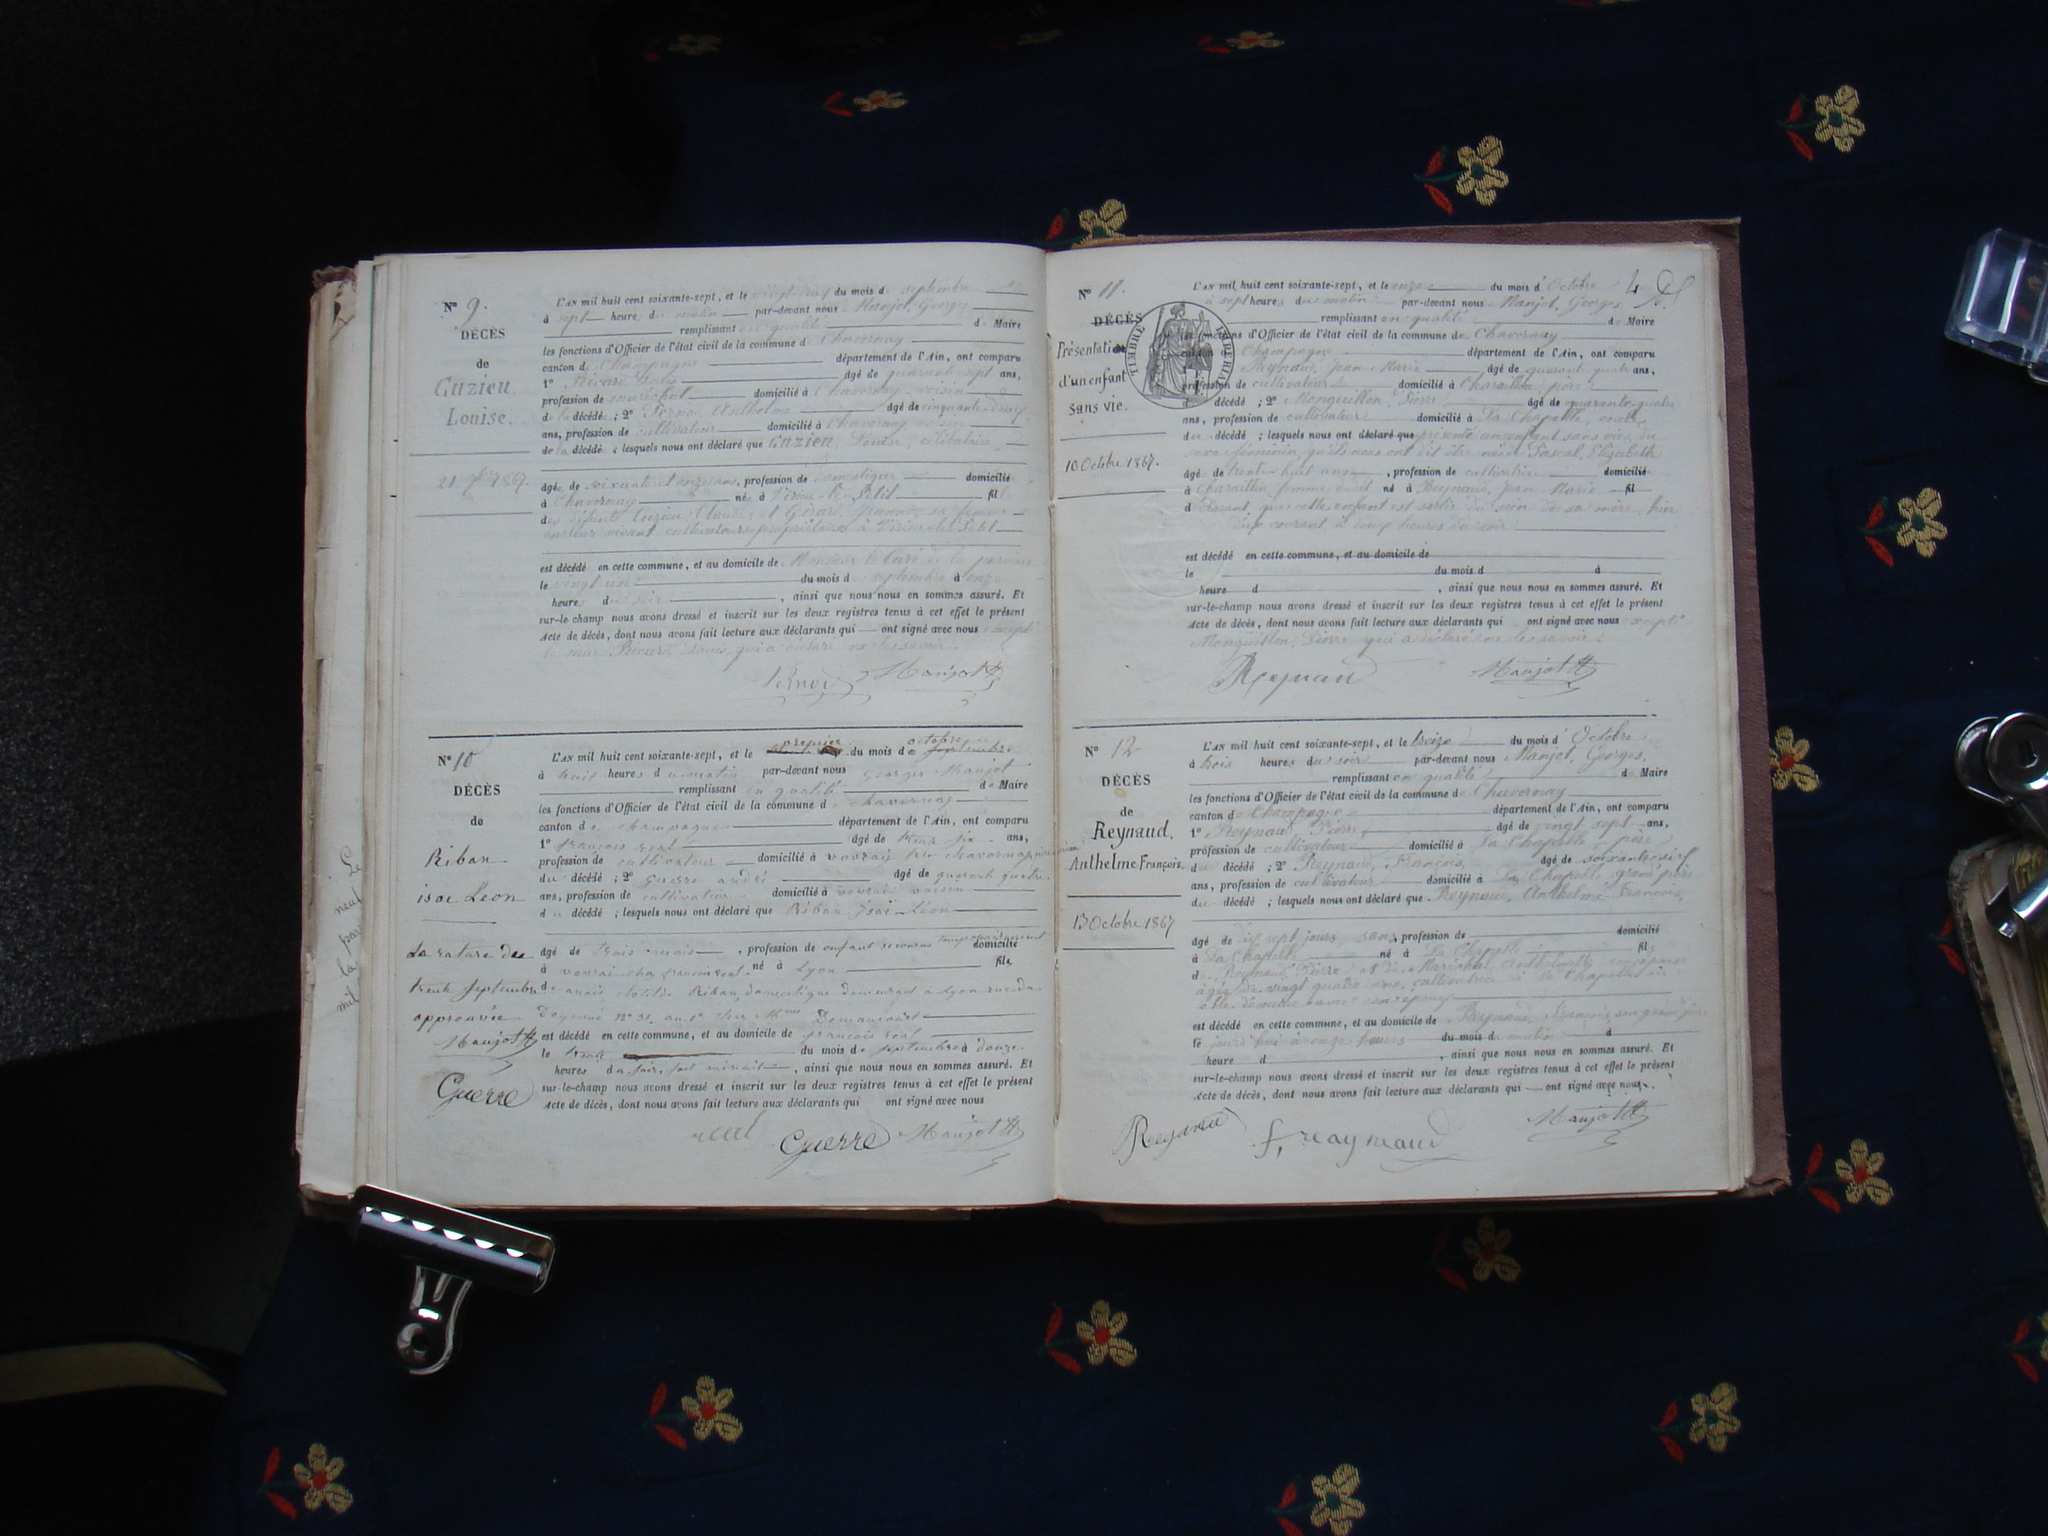 Nº 9.
DÉCÈS
de
Guzieu
Louise.
21 7bre 1867.
L'AN mil huit cent soixante-sept, et le vingt trois du mois de septembre
à sept heures du matin par-devant nous Manjot, Georges
remplissant en qualité de Maire
les fonctions d'Officier de l'état civil de la commune de Chavornay
canton de Champagne département de l'Ain, ont comparu
1º Louis âgé de quarante sept ans,
profession de maréchal domicilié à Chavornay, voisin
de la décédée ; 2º Anthelme âgé de cinquante
ans, profession de cultivateur domicilié à Chavornay
de la décédée ; lesquels nous ont déclaré que Guzieu, Louise, célibataire
âgée de soixante et onze ans, profession de domestique domiciliée
à Chavornay née à Virieu-le-Petit fil
des défunts Guzieu, Claude et Girard, sa femme
cultivateurs propriétaires à Virieu-le-Petit
est décédée en cette commune, et au domicile de Monsieur le Curé de la paroisse
le vingt un du mois de septembre à onze
heures du soir, ainsi que nous nous en sommes assuré. Et
sur-le-champ nous avons dressé et inscrit sur les deux registres tenus à cet effet le présent
Acte de décès, dont nous avons fait lecture aux déclarants qui ont signé avec nous excepté
Louis, qui a déclaré ne le savoir.
Manjot
Nº 10
DÉCÈS
de
Riban
isac Leon
La rature de
trente Septembre
approuvée
Manjot
Guerre
L'AN mil huit cent soixante-sept, et le premier du mois de octobre septembre
à huit heures du matin par-devant nous Georges Manjot
remplissant en qualité de Maire
les fonctions d'Officier de l'état civil de la commune de chavornay
canton de champagne département de l'Ain, ont comparu
1º françois real âgé de trente six ans,
profession de cultivateur domicilié à vovray
du décédé ; 2º guerre andré âgé de quarante quatre
ans, profession de cultivateur domicilié à vovray voisin
du décédé ; lesquels nous ont déclaré que Riban isac Léon
âgé de trois mois, profession de domicilié
à vovray chez francois real né à Lyon fils
de anais clotilde Riban, domestique demeurant à Lyon rue de
nº 31, au 1er chez Mme
est décédé en cette commune, et au domicile de francois real
le trente du mois de septembre à douze
heures du soir, soit minuit, ainsi que nous nous en sommes assuré. Et
sur-le-champ nous avons dressé et inscrit sur les deux registres tenus à cet effet le présent
Acte de décès, dont nous avons fait lecture aux déclarants qui ont signé avec nous
real Guerre Manjot
Nº 11.
DÉCÈS
Présentation
d'un enfant
sans vie.
10 Octobre 1867.
TIMBRE IMPÉRIAL
4
L'AN mil huit cent soixante-sept, et le onze du mois d'Octobre
à sept heures du matin par-devant nous Manjot, Georges,
remplissant en qualité de Maire
les fonctions d'Officier de l'état civil de la commune de Chavornay
canton de Champagne département de l'Ain, ont comparu
Reynaud, Jean Marie âgé de quarante quatre ans,
profession de cultivateur domicilié à Charaillin, père
décédé ; 2º Monguillon, Pierre âgé de quarante quatre
ans, profession de cultivateur domicilié à La Chapelle, oncle
du décédé ; lesquels nous ont déclaré que présenté un enfant sans vie, du
sexe féminin, qu'ils nous ont dit être née de Pascal, Elizabeth
âgée de trente huit ans, profession de cultivatrice domicilié
à Charaillin, femme dudit né à Reynaud, Jean Marie fil
d Disant, que cette enfant est sortie du sein de sa mère, hier
dix courant à cinq heures du soir
est décédé en cette commune, et au domicile de
le du mois d à
heure d , ainsi que nous nous en sommes assuré. Et
sur-le-champ nous avons dressé et inscrit sur les deux registres tenus à cet effet le présent
Acte de décès, dont nous avons fait lecture aux déclarants qui ont signé avec nous excepté
Monguillon, Pierre qui a déclaré ne le savoir.
Reynaud Manjot
Nº 12
DÉCÈS
de
Reynaud,
Anthelme François
13 Octobre 1867
L'AN mil huit cent soixante-sept, et le treize du mois d'Octobre
à trois heures du soir par-devant nous Manjot, Georges,
remplissant en qualité de Maire
les fonctions d'Officier de l'état civil de la commune de Chavornay
canton de Champagne département de l'Ain, ont comparu
1º Reynaud, Pierre âgé de vingt sept ans,
profession de cultivateur domicilié à La Chapelle, père
du décédé ; 2º Reynaud, François, âgé de soixante neuf
ans, profession de cultivateur domicilié à La Chapelle, grand père
du décédé ; lesquels nous ont déclaré que Reynaud, Anthelme François,
âgé de dix sept jours, sans, profession de domicilié
à La Chapelle né à La Chapelle fils
de Reynaud, Pierre et de Maréchal
âgée de vingt quatre ans, cultivatrice à La Chapelle
est décédé en cette commune, et au domicile de Reynaud, François, son grand père
le jourd'hui à onze heures du mois du matin à
heure d , ainsi que nous nous en sommes assuré. Et
sur-le-champ nous avons dressé et inscrit sur les deux registres tenus à cet effet le présent
Acte de décès, dont nous avons fait lecture aux déclarants qui ont signé avec nous.
Reynaud f. reaynaud Manjot